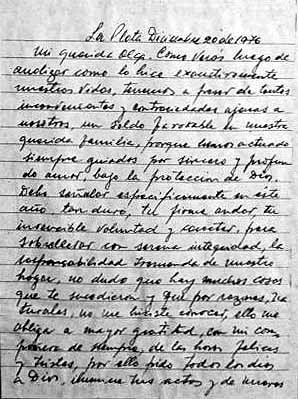 La Plata Diciembre 20 de 1976
Mi querida Olga. Como Verás luego de
analizar como lo hice exaustivamente
nuestras vidas, tenemos a pesar de tantos
inconvenientes y contrariedades ajenas a
nosotros, un saldo favorable en nuestra
querida familia, porque hemos actuado
siempre guiados por sincero y profun
do amor, bajo la protección de Dios.
Debo señalar específicamente en este
año tan duro, tu firme andar, tu
invariable voluntad y carácter, para
sobrellevar con serena integridad, la
responsabilidad tremenda de nuestro
hogar, no dudo que hay muchas cosas
que te sucedieron y que por razones, na
turales, no me hiciste conocer, ello me
obliga a mayor gratitud, con mi com
pañera de siempre, de las horas felices
y tristes, por ello pido todos los días
a Dios, ilumine tus actos y de nuevos